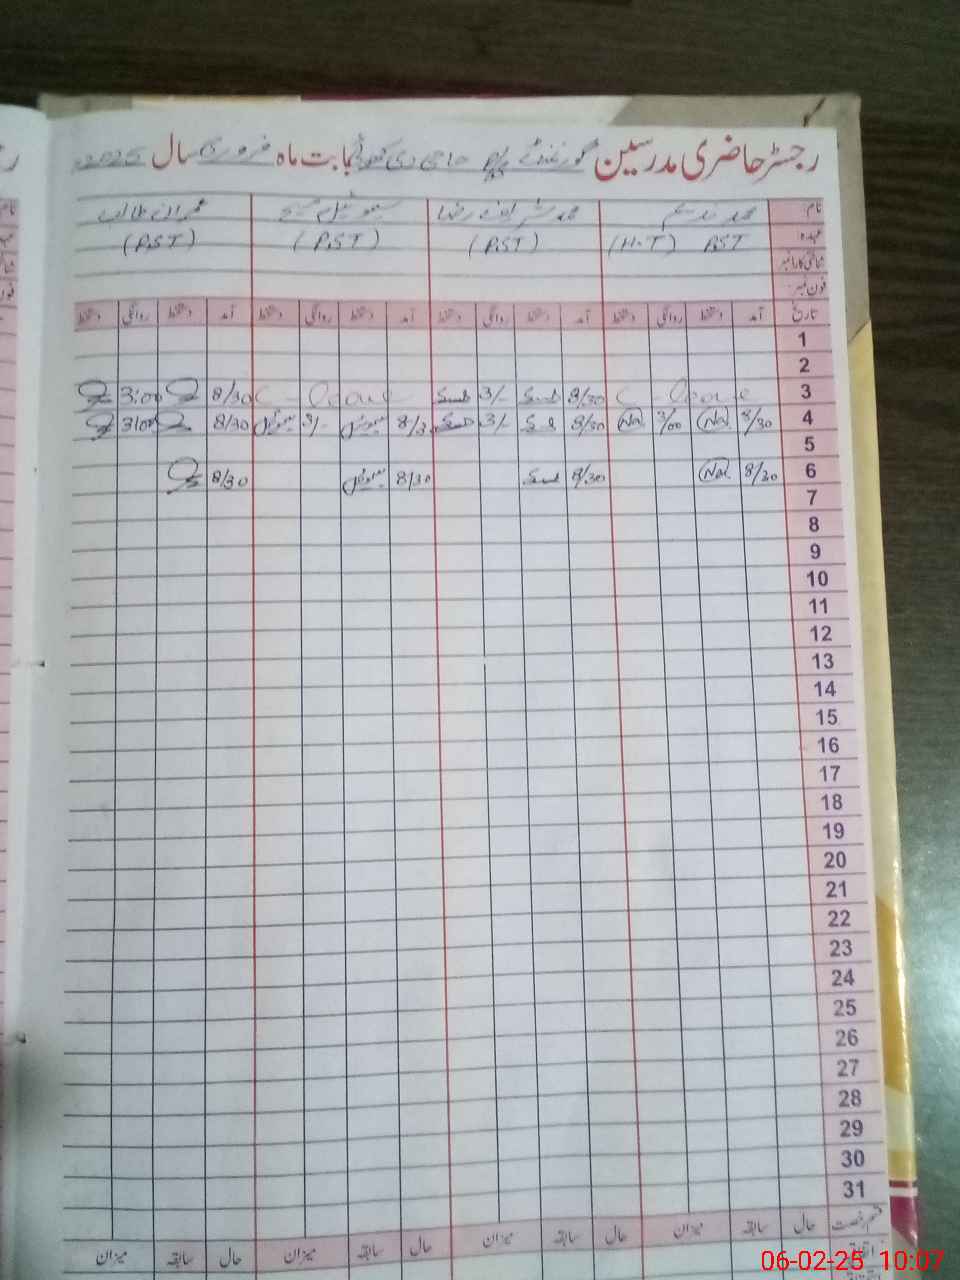 رجسٹر حاضری مدرسین گورنمنٹ بابت ماہ فروری سال 2025
نام محمد ندیم محمد شریف رضا سیموئیل مسیح عمران طالب
عہدہ (H.T) PST (PST) (PST) (PST)
شناختی کارڈ نمبر
فون نمبر
تاریخ آمد دستخط روانگی دستخط آمد دستخط روانگی دستخط آمد دستخط روانگی دستخط آمد دستخط روانگی دستخط
1
2
3 C - leave 8/30 3/- C - leave 8/30 3:00
4 8/30 3/00 8/30 3/- 8/3 3/- 8/30 3:00
5
6 8/30 8/30 8/30 8/30
7
8
9
10
11
12
13
14
15
16
17
18
19
20
21
22
23
24
25
26
27
28
29
30
31
قسم رخصت حال سابقہ میزان حال سابقہ میزان حال سابقہ میزان حال سابقہ میزان
06-02-25 10:07